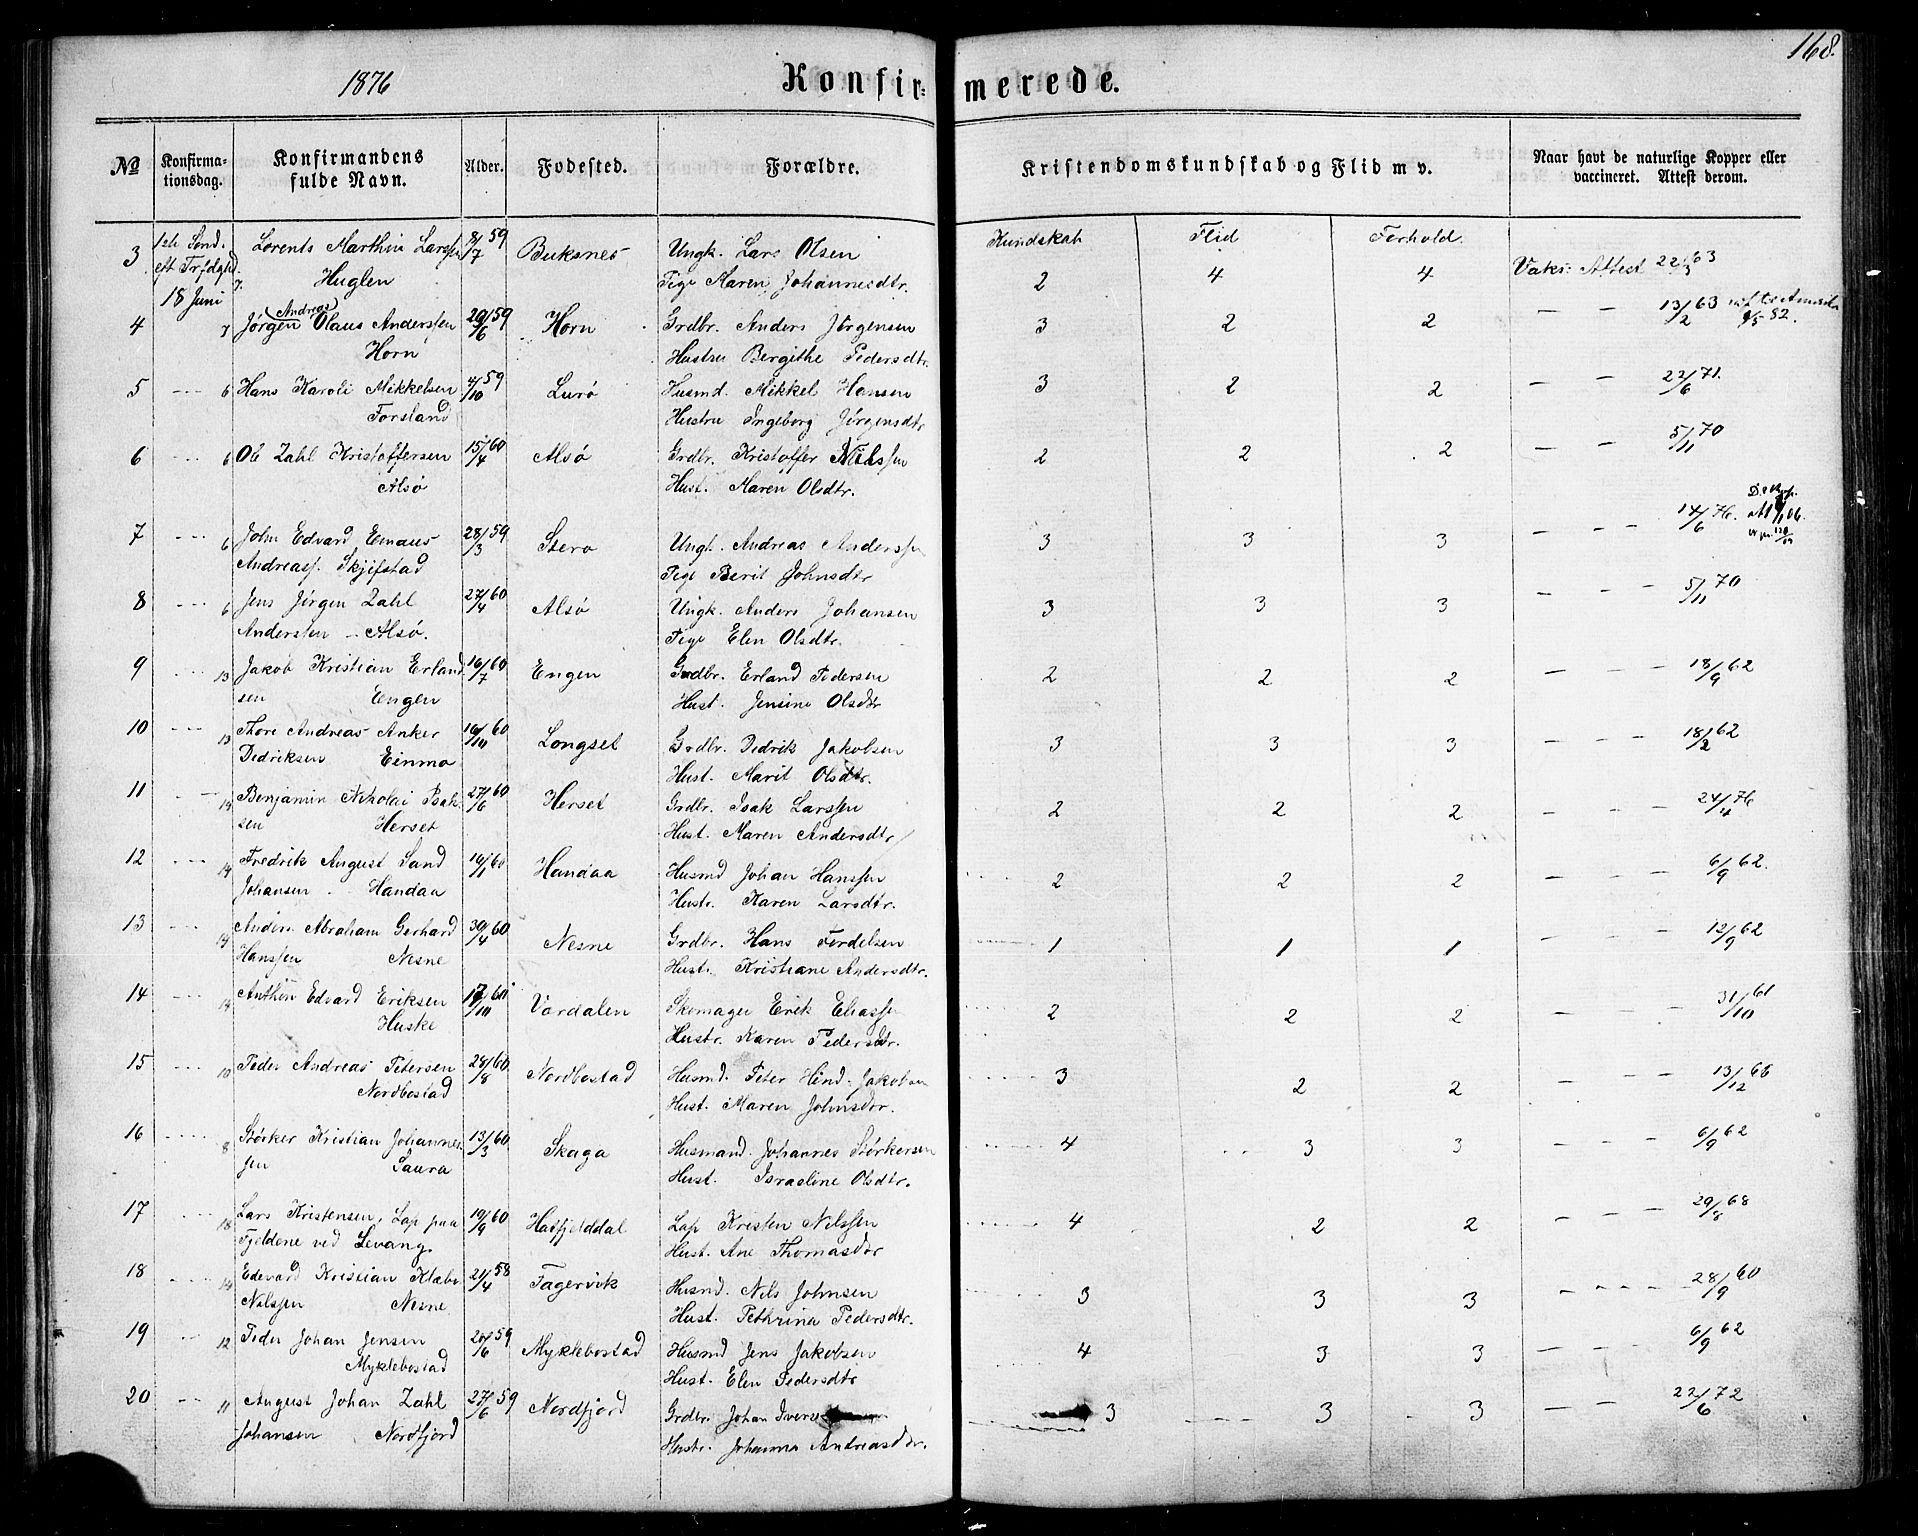 168.
1876
Konfir= merede.
No
Konfirma-
tionsdag.
Konfirmandens
fulde Navn.
Alder.
Fodested.
Forældre.
Kristendomskundskab og Flid m v.
Naar havt de naturlige Kopper eller
vaccineret. Attest derom.
Kundskab Flid Forhold.
3 Lorents Marthin Larssen 8/7 59 Buksnes Ungk. Lars Olsen 2 4 4 Vaks: Attest 63
Huglen Pige Maren Johannesdtr.
18 Juni
Andreas
4 7 Jørgen Olaus Anderssen 20/6 59 Horn Grdbr. Anders Jørgensen 3 2 2 — — 13/2 63
Horn Hustru Bergithe Pedersdtr.
5 6 Hans Karoli Mikkelsen 4/10 59 Lurø Husmd. Mikkel Hansen 3 2 2 — — 22/6 71.
Forsland Hustru Ingeborg Jørgensdtr
6 6 Ol Zahl Kristoffersen 15/4 60 Alsø Grdbr. Kristoffer Nilssen 2 2 2 — — 5/11 70
Alsø Hust. Maren Olsdtr.
7 6 John Edvard Emaus 28/3 59 Stero Ungk. Andreas Anderssen 3 3 3 — — — 14/6 76.
Andreass. Skjifstad Pige Berit Johnsdtr
8 6 Jens Jørgen Zahl 27/4 60 Alsø Ungk. Anders Johansen 3 3 3 — — — 5/11 70
Anderssen - Alsø. Pige Elen Olsdtr.
9 13 Jakob Kristian Erland 16/7 60 Engen Grdbr. Erland Pedersen 2 2 2 — — — 18/9 62
sen Engen Hust. Jensine Olsdtr
10 13 Thore Andreas Anker 16/10 60 Longset Grdbr. Didrik Jakobsen 3 3 3 — — — 18/2 62
Didriksen Einmo Hust. Marit Olsdtr.
11 14 Benjamin Nikolai Isak- 27/6 60 Herset Grdbr. Isak Larssen 2 2 2 — — 24/4 76
sen Herset Hust. Maren Andersdtr
12 14 Fredrik August Sand 19/1 60 Handaa Husmd Johan Hanssen 2 2 2 — — — 6/9 62.
Johansen Handaa Hustr. Karen Larsdtr.
13 14 Anders Abraham Gerhard 30/4 60 Nesne Grdbr. Hans Fordelsen 1 1 1 — — — 12/9 62
Hanssen Nesne Hust. Kristiane Andersdtr.
14 14 Anthon Edvard Eriksen 17/10 60 Vardalen Skomager Erik Eliassen 2 2 2 — — — 31/10 61
Huske Hustr. Karen Pedersdtr.
15 10 Peder Andreas Petersen 28/8 60 Nordbostad Husmd. Peter Hind. Jakobsen 3 2 2 — — — 13/12 66
Nordbostad Hust. Maren Johnsdtr.
16 8 Størker Kristian Johannes- 13/3 60 Skaga Husmand Johannes Størkersen 4 3 3 — — — 6/9 62
sen Saura Hust. Israeline Olsdtr.
17 18 Lars Kristensen, Lap paa 19/9 60 Hatfjelddal Lap Kristen Nilssen 4 2 2 — — — 29/8 68
Fjeldene ved Levang. Hust. Ane Thomasdtr
18 14 Edevard Kristian Klæbo 21/4 58 Fagervik Husmd. Nils Johnsen 3 3 3 — — — 28/9 60
Nilssen Nesne Hust. Pethrina Pedersdtr.
19 12 Peder Johan Jensen 20/6 59 Myklebostad Husmd Jens Jakobsen 4 3 3 — — — 6/9 62
Myklebostad Hust. Elen Pedersdtr
20 11 August Johan Zahl 27/6 59 Nordfjord Grdbr. Johan 3 3 3 — — — 22/6 72
Johansen Nordfjord Hustr. Johanna Andreasdtr.